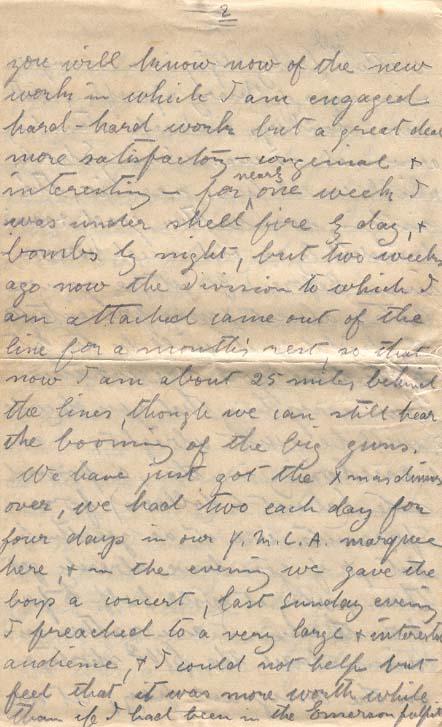 2
you will know now of the new
work in which I am engaged
hard-hard work but a great deal
more satisfactory - congenial &
interesting - for nearly one week I
was under shell fire by day, &
bombs by night, but two weeks
ago now the Division to which I
am attached came out of the
line for a month's rest, so that
now I am about 25 miles behind
the lines, though we can still hear
the booming of the big guns.
We have just got the Xmas dinners
over, we had two each day for
four days in our Y.M.C.A. marquee
here, & in the evening we gave the
boys a concert, last Sunday evening
I preached to a very large & interested
audience, & I could not help but
feel that it was more worth while
than if I had been in the Emerson pulpit